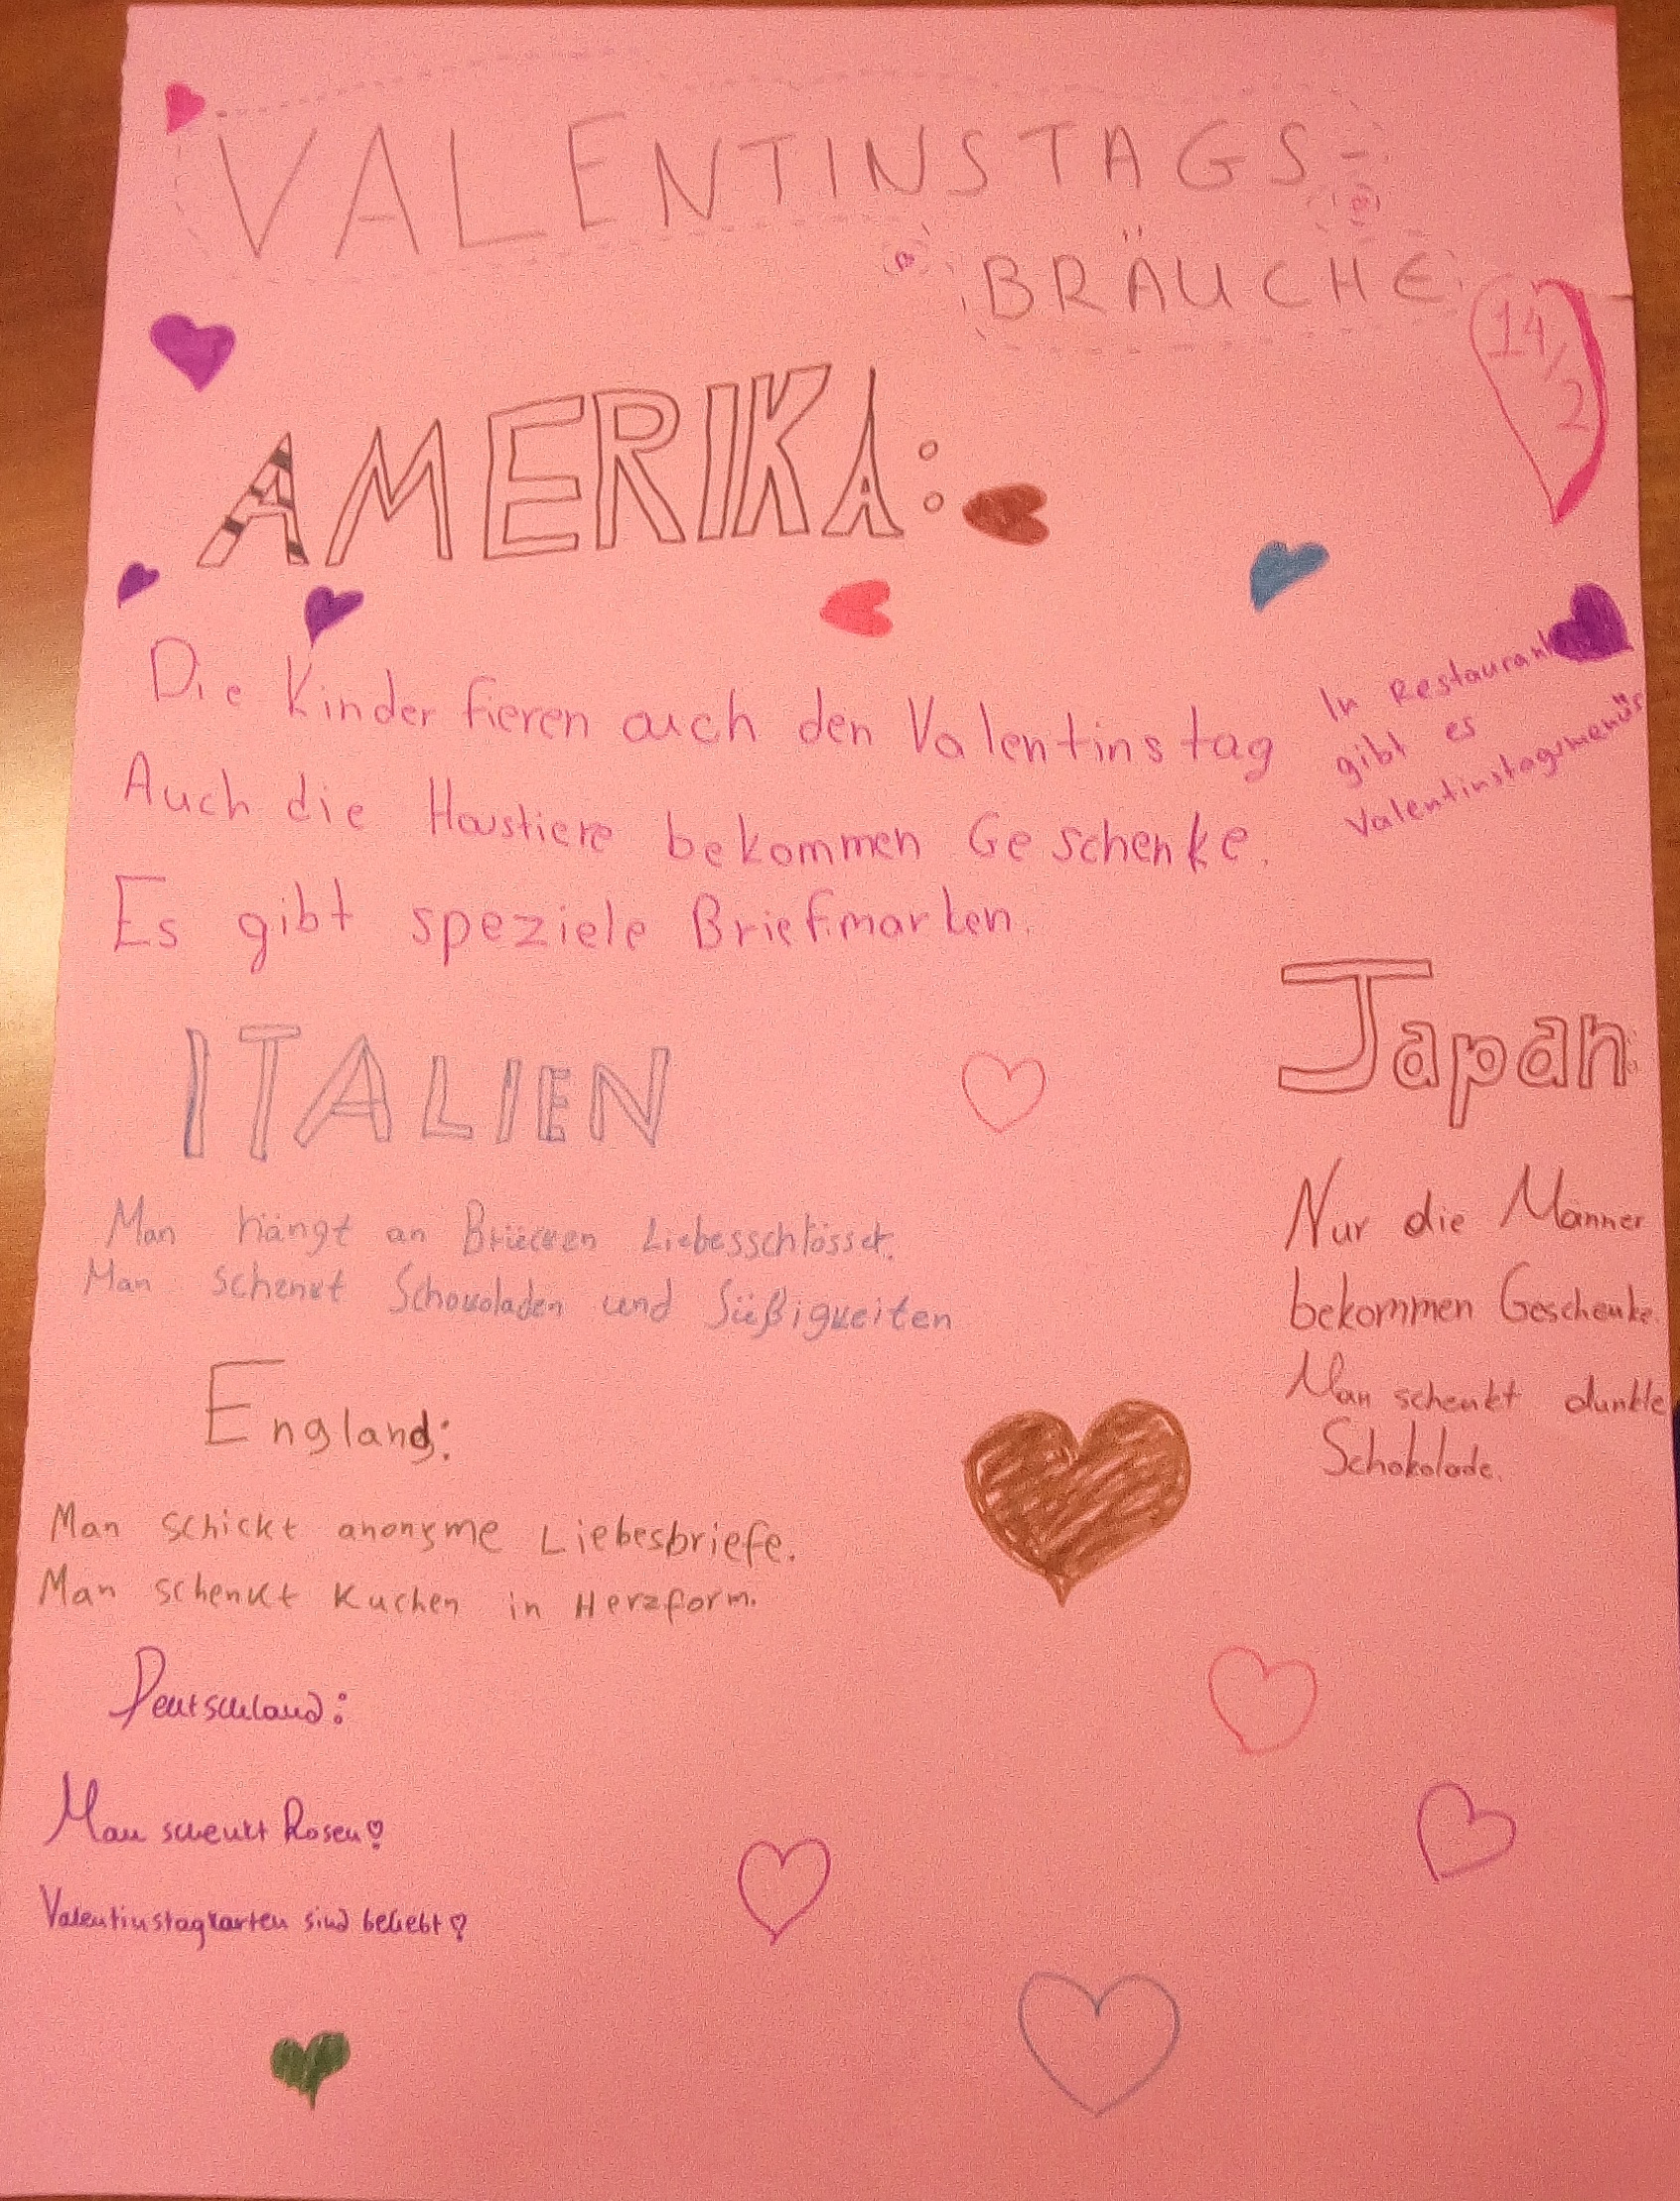 VALENTINSTAGS-
BRÄUCHE
14/2
AMERIKA:
Die Kinder fieren auch den Valentinstag
Auch die Haustiere bekommen Geschenke.
Es gibt speziele Briefmarken.
In Restaurant
gibt es
Valentinstagsmenüs
ITALIEN
Man hängt an Brücken Liebesschlösser.
Man schenkt Schokoladen und Süßigkeiten
Japan:
Nur die Männer
bekommen Geschenke.
Man schenkt dunkle
Schokolade.
England:
Man schickt anonyme Liebesbriefe.
Man schenkt Kuchen in Herzform.
Deutschland:
Man schenkt Rosen
Valentinstagkarten sind beliebt